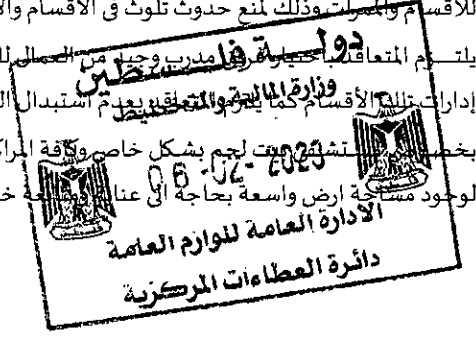 للأقسام والممرات وذلك لمنع حدوث تلوث في الأقسام وا
يلتزم المتعاقد باختيار فريق مدرب وجيد من العمال لل
إدارات تلك الأقسام كما يلتزم المتعاقد بعدم استبدال ال
بخصوص مستشفى بيت لحم بشكل خاص وكافة المراك
لوجود مساحة ارض واسعة بحاجة الى عناية خ
دولة فلسطين
وزارة المالية والتخطيط
الادارة العامة للوازم العامة
دائرة العطاءات المركزية